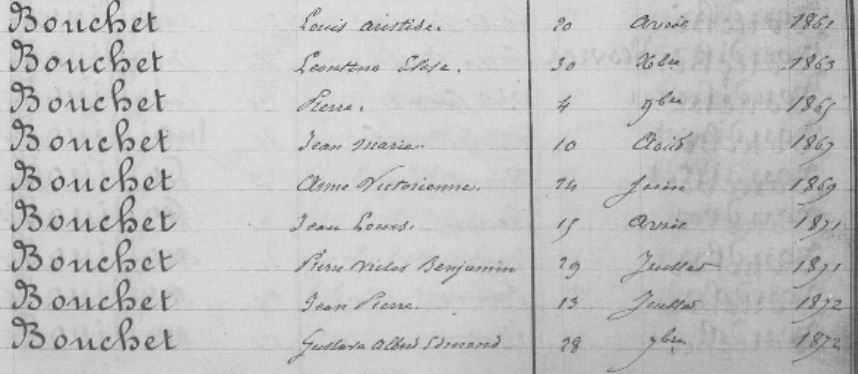 Bouchet Louis Aristide. 20 Avril 1861
Bouchet Leontine Elise. 30 Xbre 1863
Bouchet Pierre. 4 9bre 1865
Bouchet Jean Marie. 10 Août 1867
Bouchet Anne Victorienne. 24 Juin 1869
Bouchet Jean Louis. 15 Avril 1871
Bouchet Pierre Victor Benjamin 29 Juillet 1871
Bouchet Jean Pierre. 13 Juillet 1872
Bouchet Gustave Albert Edmond 28 9bre 1872